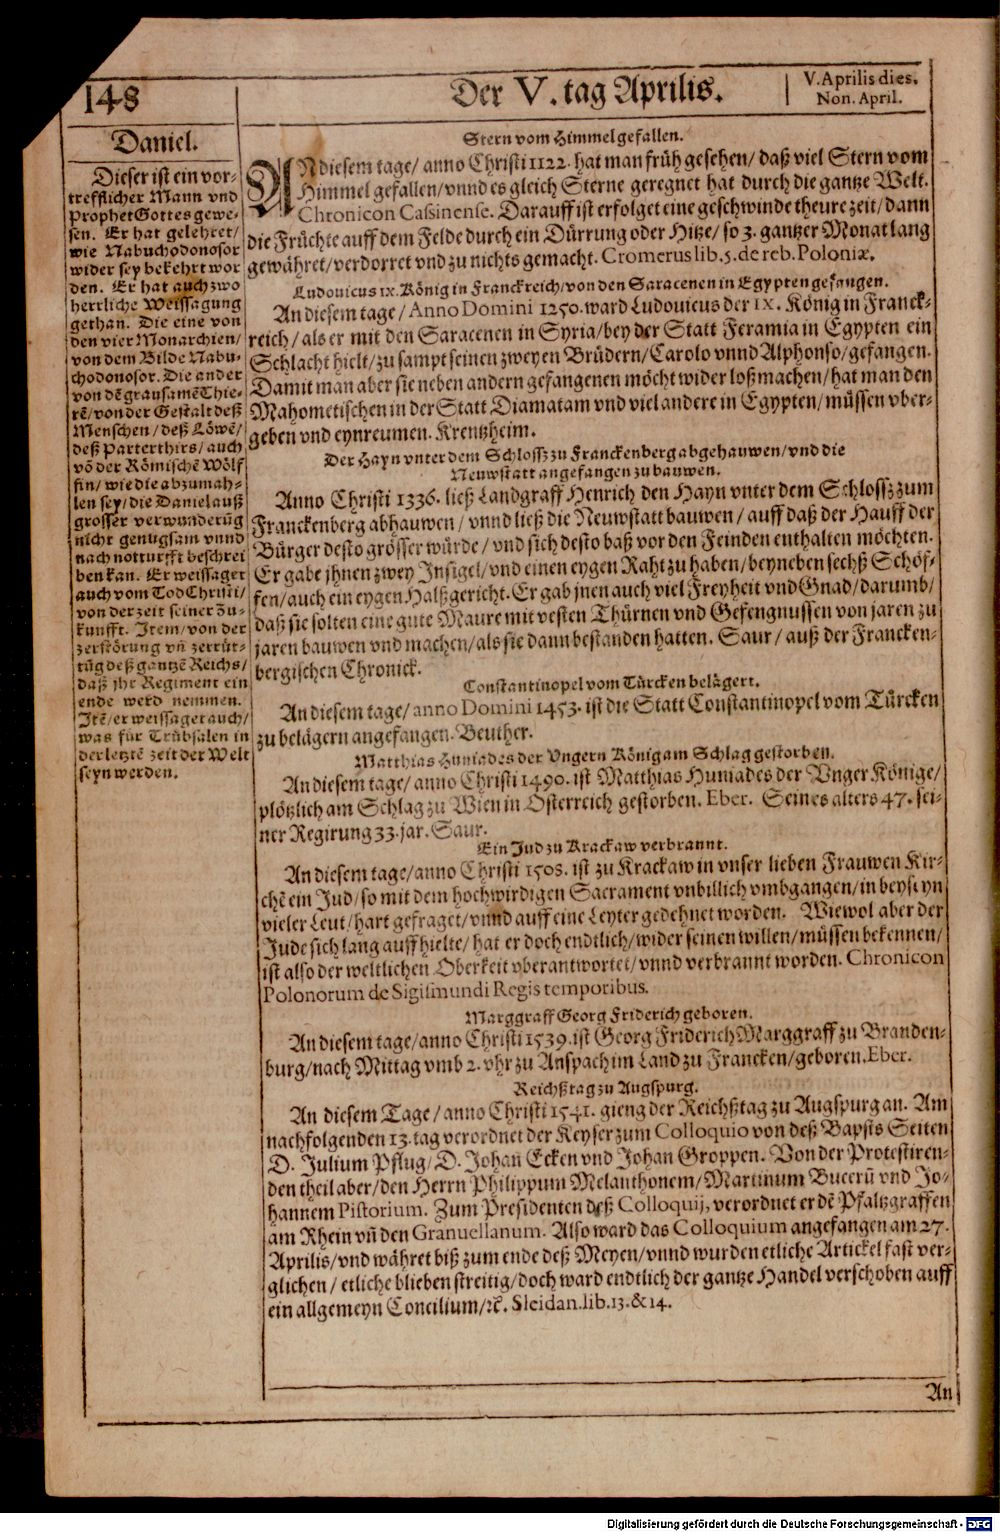 148
Der V. tag Aprilis.
V. Aprilis dies.
Non. April.
Daniel.
Dieser ist ein vor-
trefflicher Mann vnd
Prophet Gottes gewe-
sen. Er hat gelehret/
wie Nabuchodonosor
wider sey bekehrt wor
den. Er hat auch zwo
herrliche Weissagung
gethan. Die eine von
den vier Monarchien/
von dem Bilde Nabu-
chodonosor. Die ander
von dẽ grausamẽ Thie-
rẽ/ von der Gestalt deß
Menschen/ deß Löwẽ/
deß Parterthirs/ auch
võ der Römischẽ Wölf
fin/ wie die abzumah-
len sey/ die Daniel auß
grosser verwunderũg
nicht genugsam vnnd
nach notturfft beschrei
ben kan. Er weissaget
auch vom Tod Christi/
von der zeit seiner Zu-
kunfft. Item/ von der
zerstörung vñ zerrüt-
tũg deß gantzẽ Reichs/
daß jhr Regiment ein
ende werd nemmen.
Itẽ/ er weissaget auch/
was für Trübsalen in
der letztẽ zeit der Welt
seyn werden.
Stern vom Himmel gefallen.
AN diesem tage/ anno Christi 1122. hat man früh gesehen/ daß viel Stern vom
Himmel gefallen/ vnnd es gleich Sterne geregnet hat durch die gantze Welt.
Chronicon Cassinense. Darauff ist erfolget eine geschwinde theure zeit/ dann
die Früchte auff dem Felde durch ein Dürrung oder Hitze/ so 3. gantzer Monat lang
gewähret/ verdorret vnd zu nichts gemacht. Cromerus lib. 5. de reb. Poloniæ.
Ludouicus IX. König in Franckreich/ von den Saracenen in Egypten gefangen.
An diesem tage/ Anno Domini 1250. ward Ludouicus der IX. König in Franck-
reich/ als er mit den Saracenen in Syria/ bey der Statt Feramia in Egypten ein
Schlacht hielt/ zu sampt seinen zweyen Brüdern/ Carolo vnnd Alphonso/ gefangen.
Damit man aber sie neben andern gefangenen möcht wider loß machen/ hat man den
Mahometischen in der Statt Diamatam vnd viel andere in Egypten/ müssen vber-
geben vnd eynreumen. Krentzheim.
Der Hayn vnter dem Schlossz zu Franckenberg abgehauwen/ vnd die
Neuwstatt angefangen zu bauwen.
Anno Christi 1336. ließ Landgraff Henrich den Hayn vnter dem Schlossz zum
Franckenberg abhauwen/ vnnd ließ die Neuwstatt bauwen/ auff daß der Hauff der
Bürger desto grösser würde/ vnd sich desto baß vor den Feinden enthalten möchten.
Er gabe jhnen zwey Insigel/ vnd einen eygen Raht zu haben/ beyneben sechß Schöf-
fen/ auch ein eygen Halßgericht. Er gab jnen auch viel Freyheit vnd Gnad/ darumb/
daß sie solten eine gute Maure mit vesten Thürnen vnd Gefengnussen von jaren zu
jaren bauwen vnd machen/ als sie dann bestanden hatten. Saur/ auß der Francken-
bergischen Chronick.
Constantinopel vom Türcken belägert.
An diesem tage/ anno Domini 1453. ist die Statt Constantinopel vom Türcken
zu belägern angefangen. Beuther.
Matthias Huniades der Vngern König am Schlag gestorben.
An diesem tage/ anno Christi 1490. ist Matthias Huniades der Vnger Könige/
plötzlich am Schlag zu Wien in Osterreich gestorben. Eber. Seines alters 47. sei-
ner Regirung 33. jar. Saur.
Ein Jud zu Krackaw verbrannt.
An diesem tage/ anno Christi 1508. ist zu Krackaw in vnser lieben Frauwen Kir-
chẽ ein Jud/ so mit dem hochwirdigen Sacrament vnbillich vmbgangen/ in beyseyn
vieler Leut/ hart gefraget/ vnnd auff eine Leyter gedehnet worden. Wiewol aber der
Jude sich lang auffhielte/ hat er doch endtlich/ wider seinen willen/ müssen bekennen/
ist also der weltlichen Oberkeit vberantwortet/ vnnd verbrannt worden. Chronicon
Polonorum de Sigismundi Regis temporibus.
Marggraff Georg Friderich geboren.
An diesem tage/ anno Christi 1539. ist Georg Friderich Marggraff zu Branden-
burg/ nach Mittag vmb 2. vhr zu Anspach im Land zu Francken/ geboren. Eber.
Reichßtag zu Augspurg.
An diesem Tage/ anno Christi 1541. gieng der Reichßtag zu Augspurg an. Am
nachfolgenden 13. tag verordnet der Keyser zum Colloquio von deß Bapsts Seiten
D. Julium Pflug/ D. Johañ Ecken vnd Johan Groppen. Von der Protestiren-
den theil aber/ den Herrn Philippum Melanthonem/ Martinum Bucerũ vnd Jo-
hannem Pistorium. Zum Presidenten deß Colloquij, verordnet er dẽ Pfaltzgraffen
am Rhein vñ den Granuellanum. Also ward das Colloquium angefangen am 27.
Aprilis/ vnd währet biß zum ende deß Meyen/ vnnd wurden etliche Artickel fast ver-
glichen/ etliche blieben streitig/ doch ward endtlich der gantze Handel verschoben auff
ein allgemeyn Concilium/ ꝛc. Sleidan. lib. 13. & 14.
An
Digitalisierung gefördert durch die Deutsche Forschungsgemeinschaft - DFG